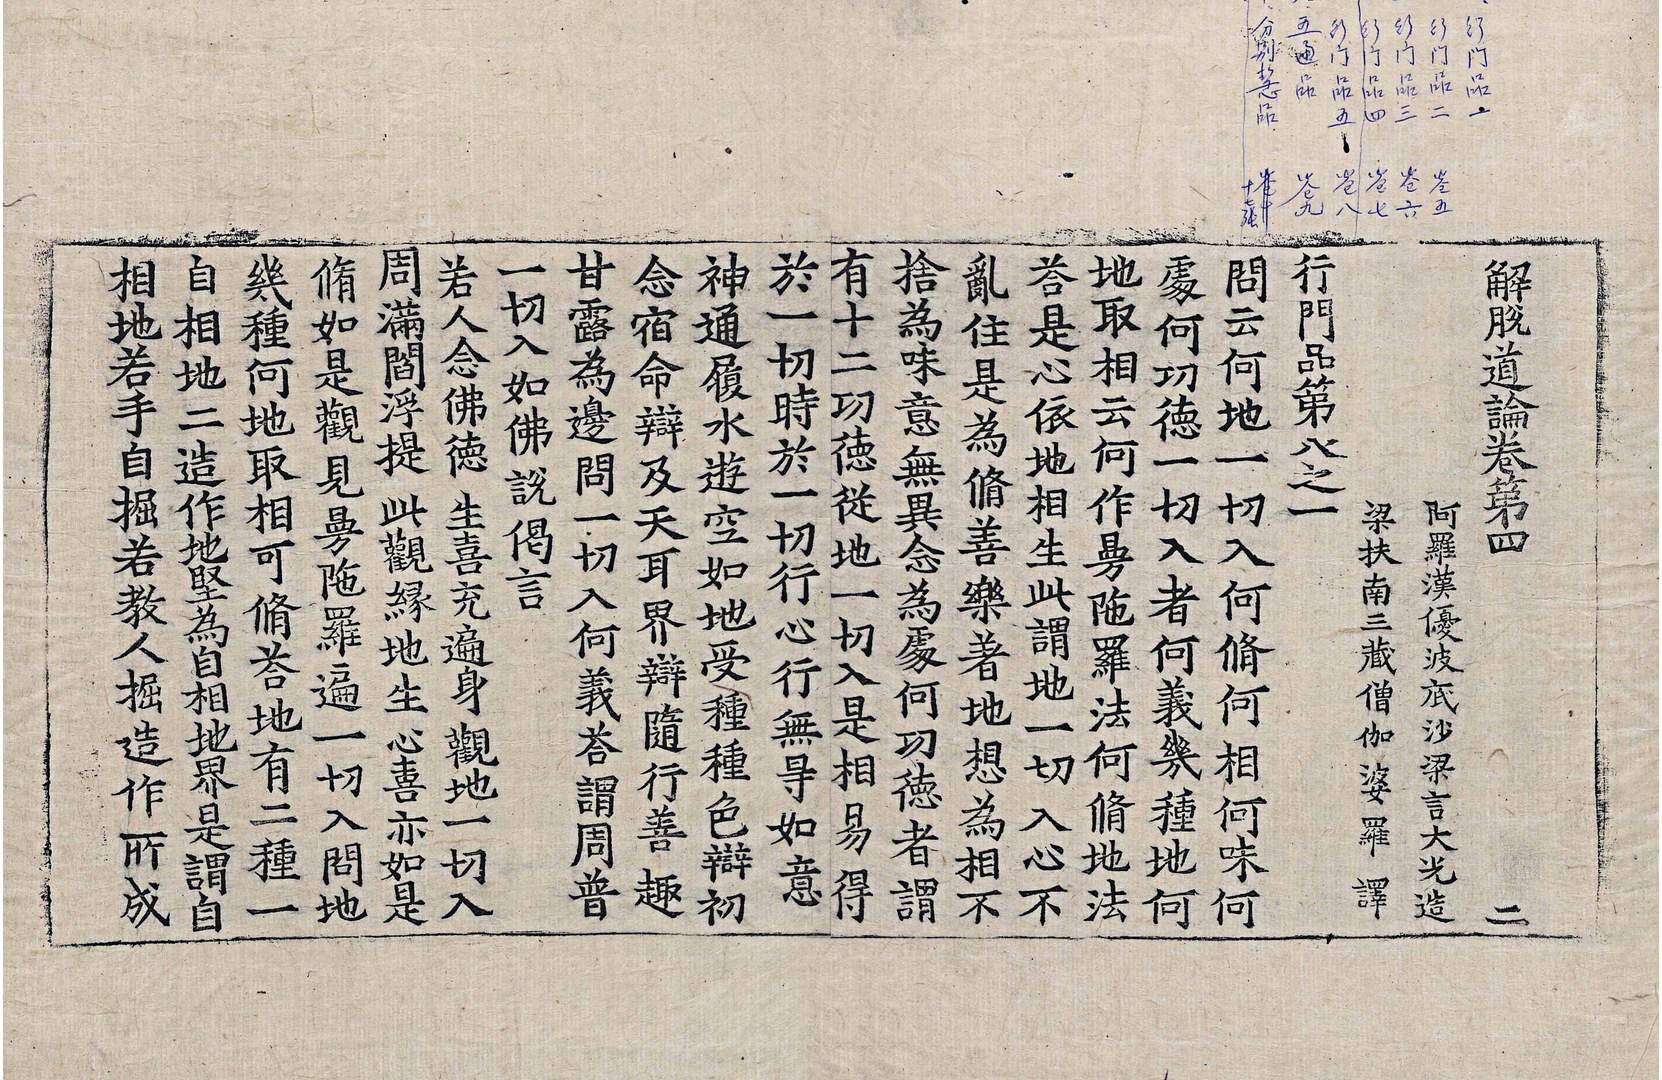 行門品上
行門品二 卷五
行門品三 卷六
行門品四 卷七
行門品五 卷八
五通品 卷九
分別慧品
解脫道論卷第四 二
阿羅漢優波底沙梁言大光造
梁扶南三藏僧伽婆羅 譯
行門品第八之一
問云何地一切入何脩何相何味何
處何功德一切入者何義幾種地何
地取相云何作曼陁羅法何脩地法
荅是心依地相生此謂地一切入心不
亂住是為脩善樂著地想為相不
捨為味意無異念為處何功德者謂
有十二功德從地一切入是相易得
於一切時於一切行心行無㝵如意
神通履水遊空如地受種種色辯初
念宿命辯及天耳界辯隨行善趣
甘露為邊問一切入何義荅謂周普
一切入如佛說偈言
若人念佛德 生喜充遍身 觀地一切入
周滿閻浮提 此觀緣地生 心喜亦如是
脩如是觀見曼陁羅遍一切入問地
幾種何地取相可脩荅地有二種一
自相地二造作地堅為自相地界是謂自
相地若手自掘若教人掘造作所成